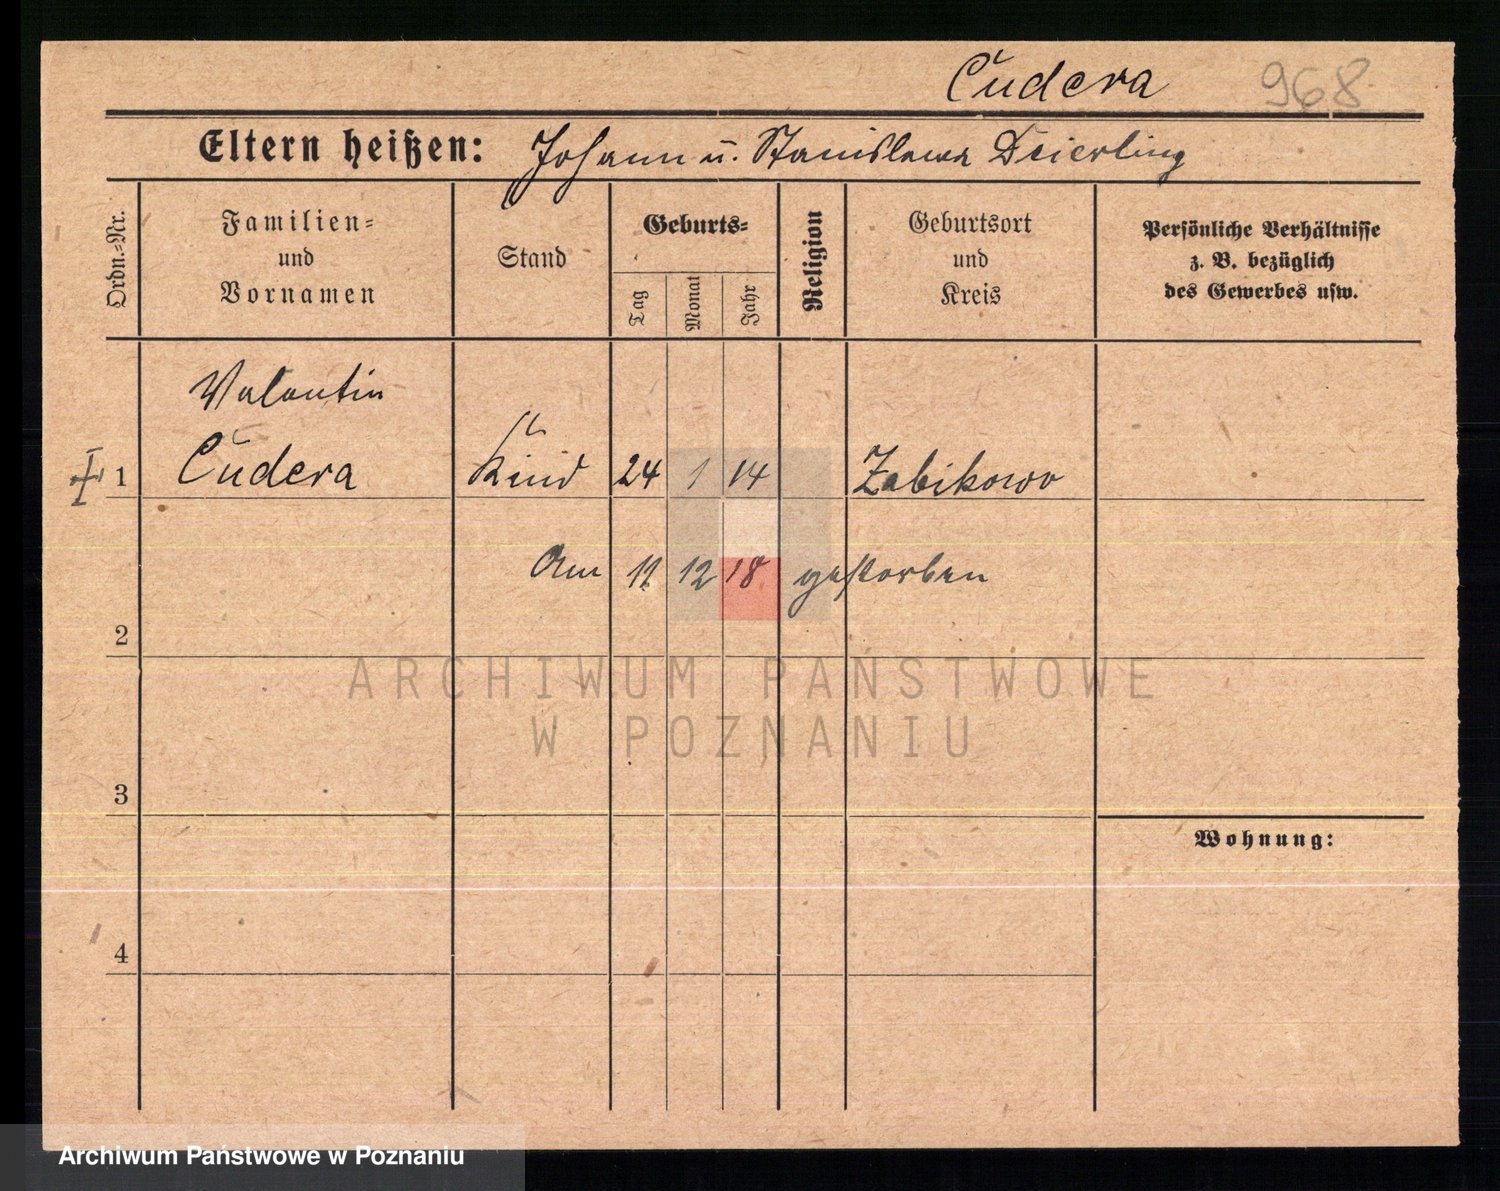 Cudera 968
Eltern heißen: Johann u. Stanislawa Dierling
Ordn.-Nr.
Familien-
und
Vornamen
Stand
Geburts-
Tag
Monat
Jahr
Religion
Geburtsort
und
Kreis
Persönliche Verhältnisse
z. B. bezüglich
des Gewerbes usw.
Valentin
1 Cudera Kind 24 1 14 Zabikowo
Am 11 12 18 gestorben
2
ARCHIWUM PAŃSTWOWE
W POZNANIU
3
Wohnung:
4
Archiwum Państwowe w Poznaniu